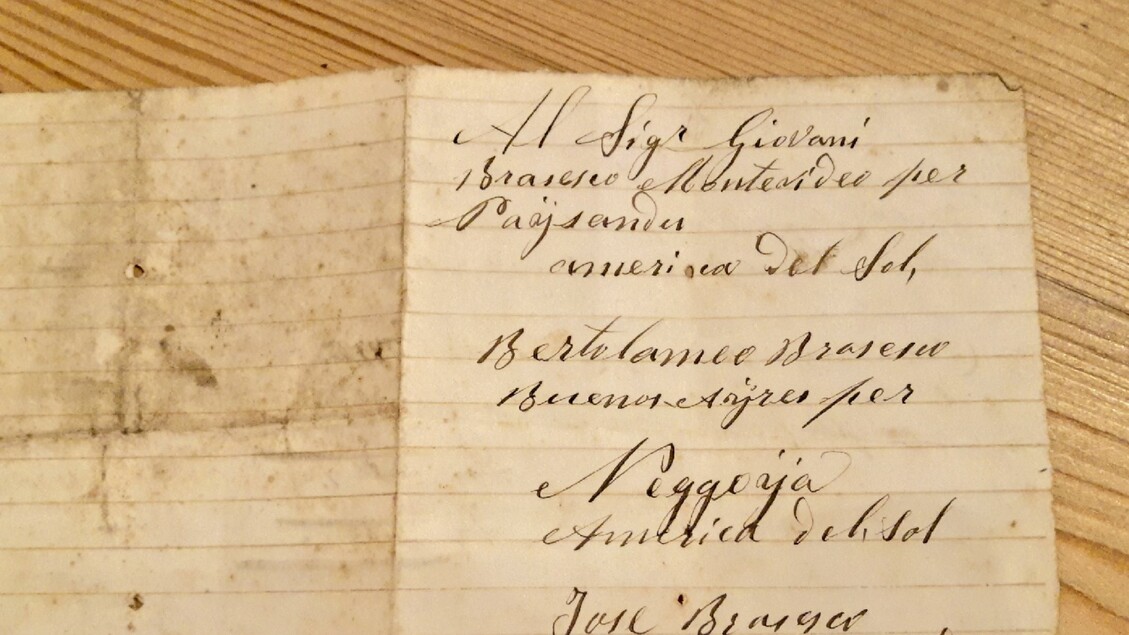 Al Sigr Giovani
Brasesco Montevideo per
Paÿsandu
america del Sol,
Bertolameo Brasesco
Buenos Aÿres per
Neggoÿa
America del Sol
José Brasesco